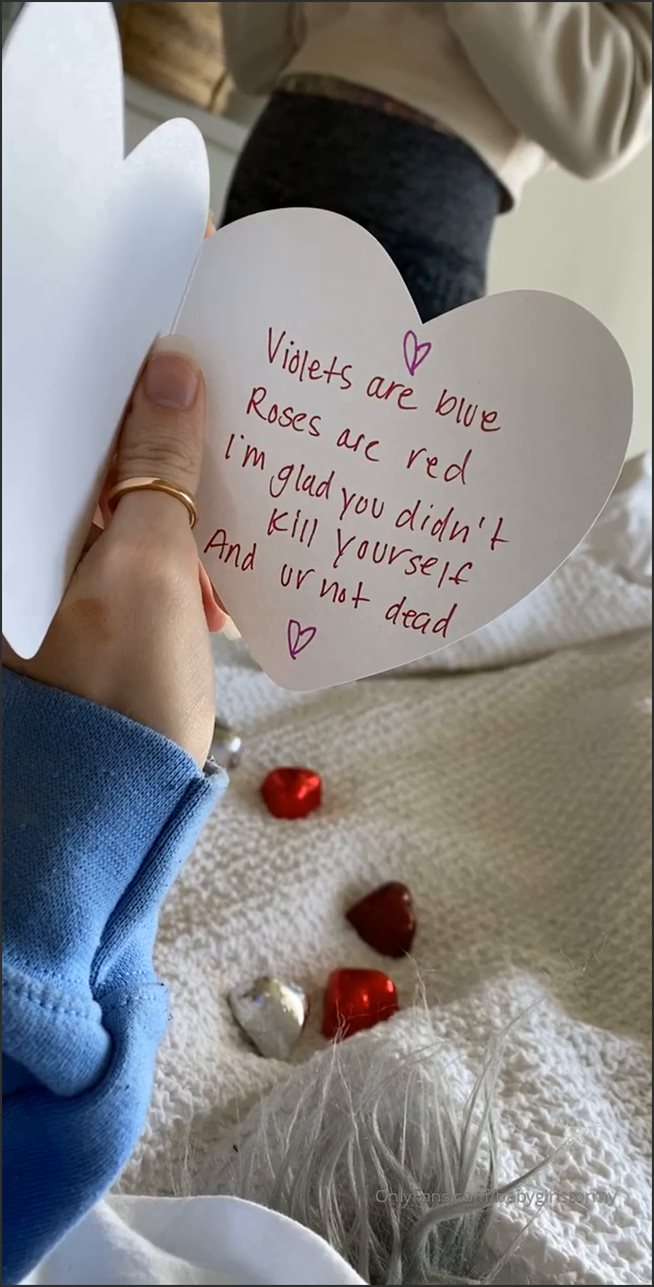 Violets are blue
Roses are red
I'm glad you didn't
kill yourself
And ur not dead